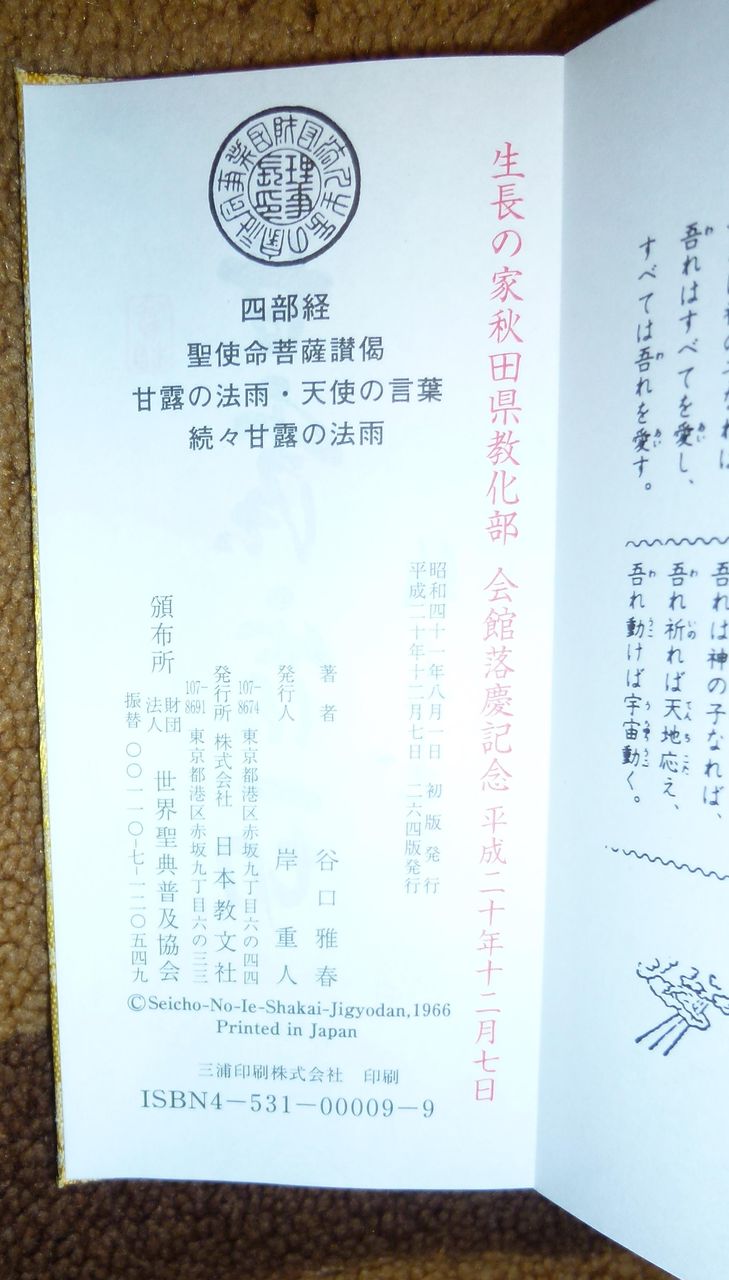 四部経
聖使命菩薩讃偈
甘露の法雨・天使の言葉
続々甘露の法雨
生長の家秋田県教化部 会館落慶記念 平成二十年十二月七日
昭和四十一年八月一日 初版発行
平成二十年十二月七日 二六四版発行
著者 谷口雅春
発行人 岸重人
107-8674 東京都港区赤坂九丁目六の四四
発行所 株式会社 日本教文社
107-8691 東京都港区赤坂九丁目六の三三
頒布所 財団法人 世界聖典普及協会
振替 〇〇一一〇-七-一二〇五四九
©Seicho-No-Ie-Shakai-Jigyodan,1966
Printed in Japan
三浦印刷株式会社 印刷
ISBN4-531-00009-9
吾れはすべてを愛し、
すべては吾れを愛す。
吾れは神の子なれば、
吾れ祈れば天地応え、
吾れ動けば宇宙動く。